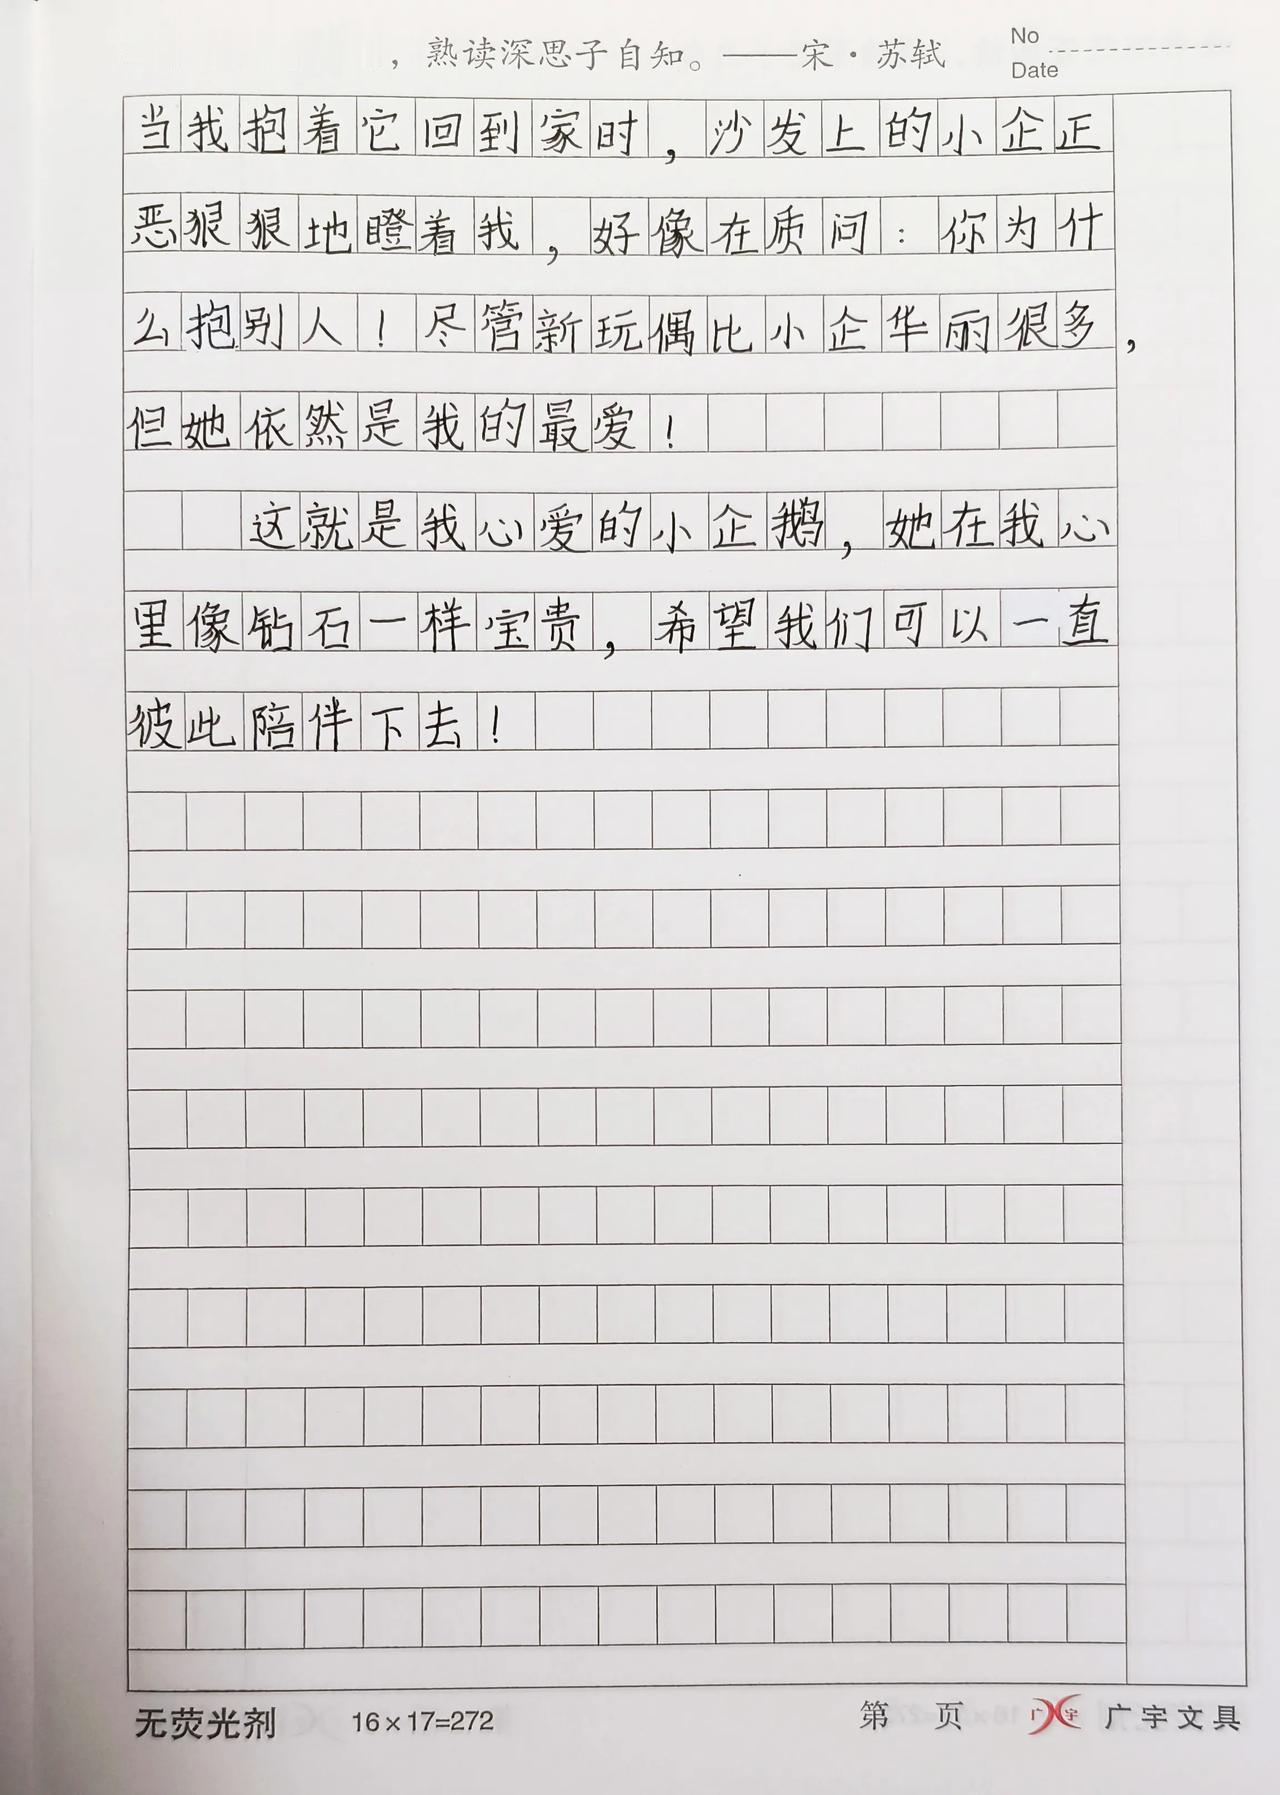 ，熟读深思子自知。——宋·苏轼
No
Date
当我抱着它回到家时，沙发上的小企正
恶狠狠地瞪着我，好像在质问：你为什
么抱别人！尽管新玩偶比小企华丽很多，
但她依然是我的最爱！
这就是我心爱的小企鹅，她在我心
里像钻石一样宝贵，希望我们可以一直
彼此陪伴下去！
无荧光剂 16×17=272 第 页 广宇 广宇文具